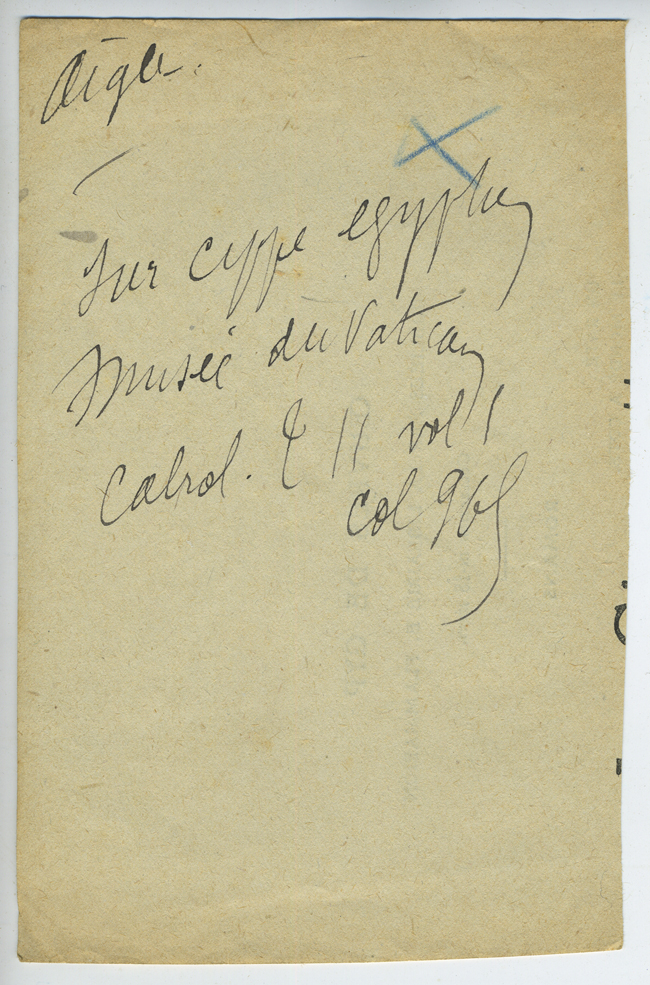 Aigle.
Sur cippe egyptien
musée du Vatican
Cabrol. t 11 vol 1
col